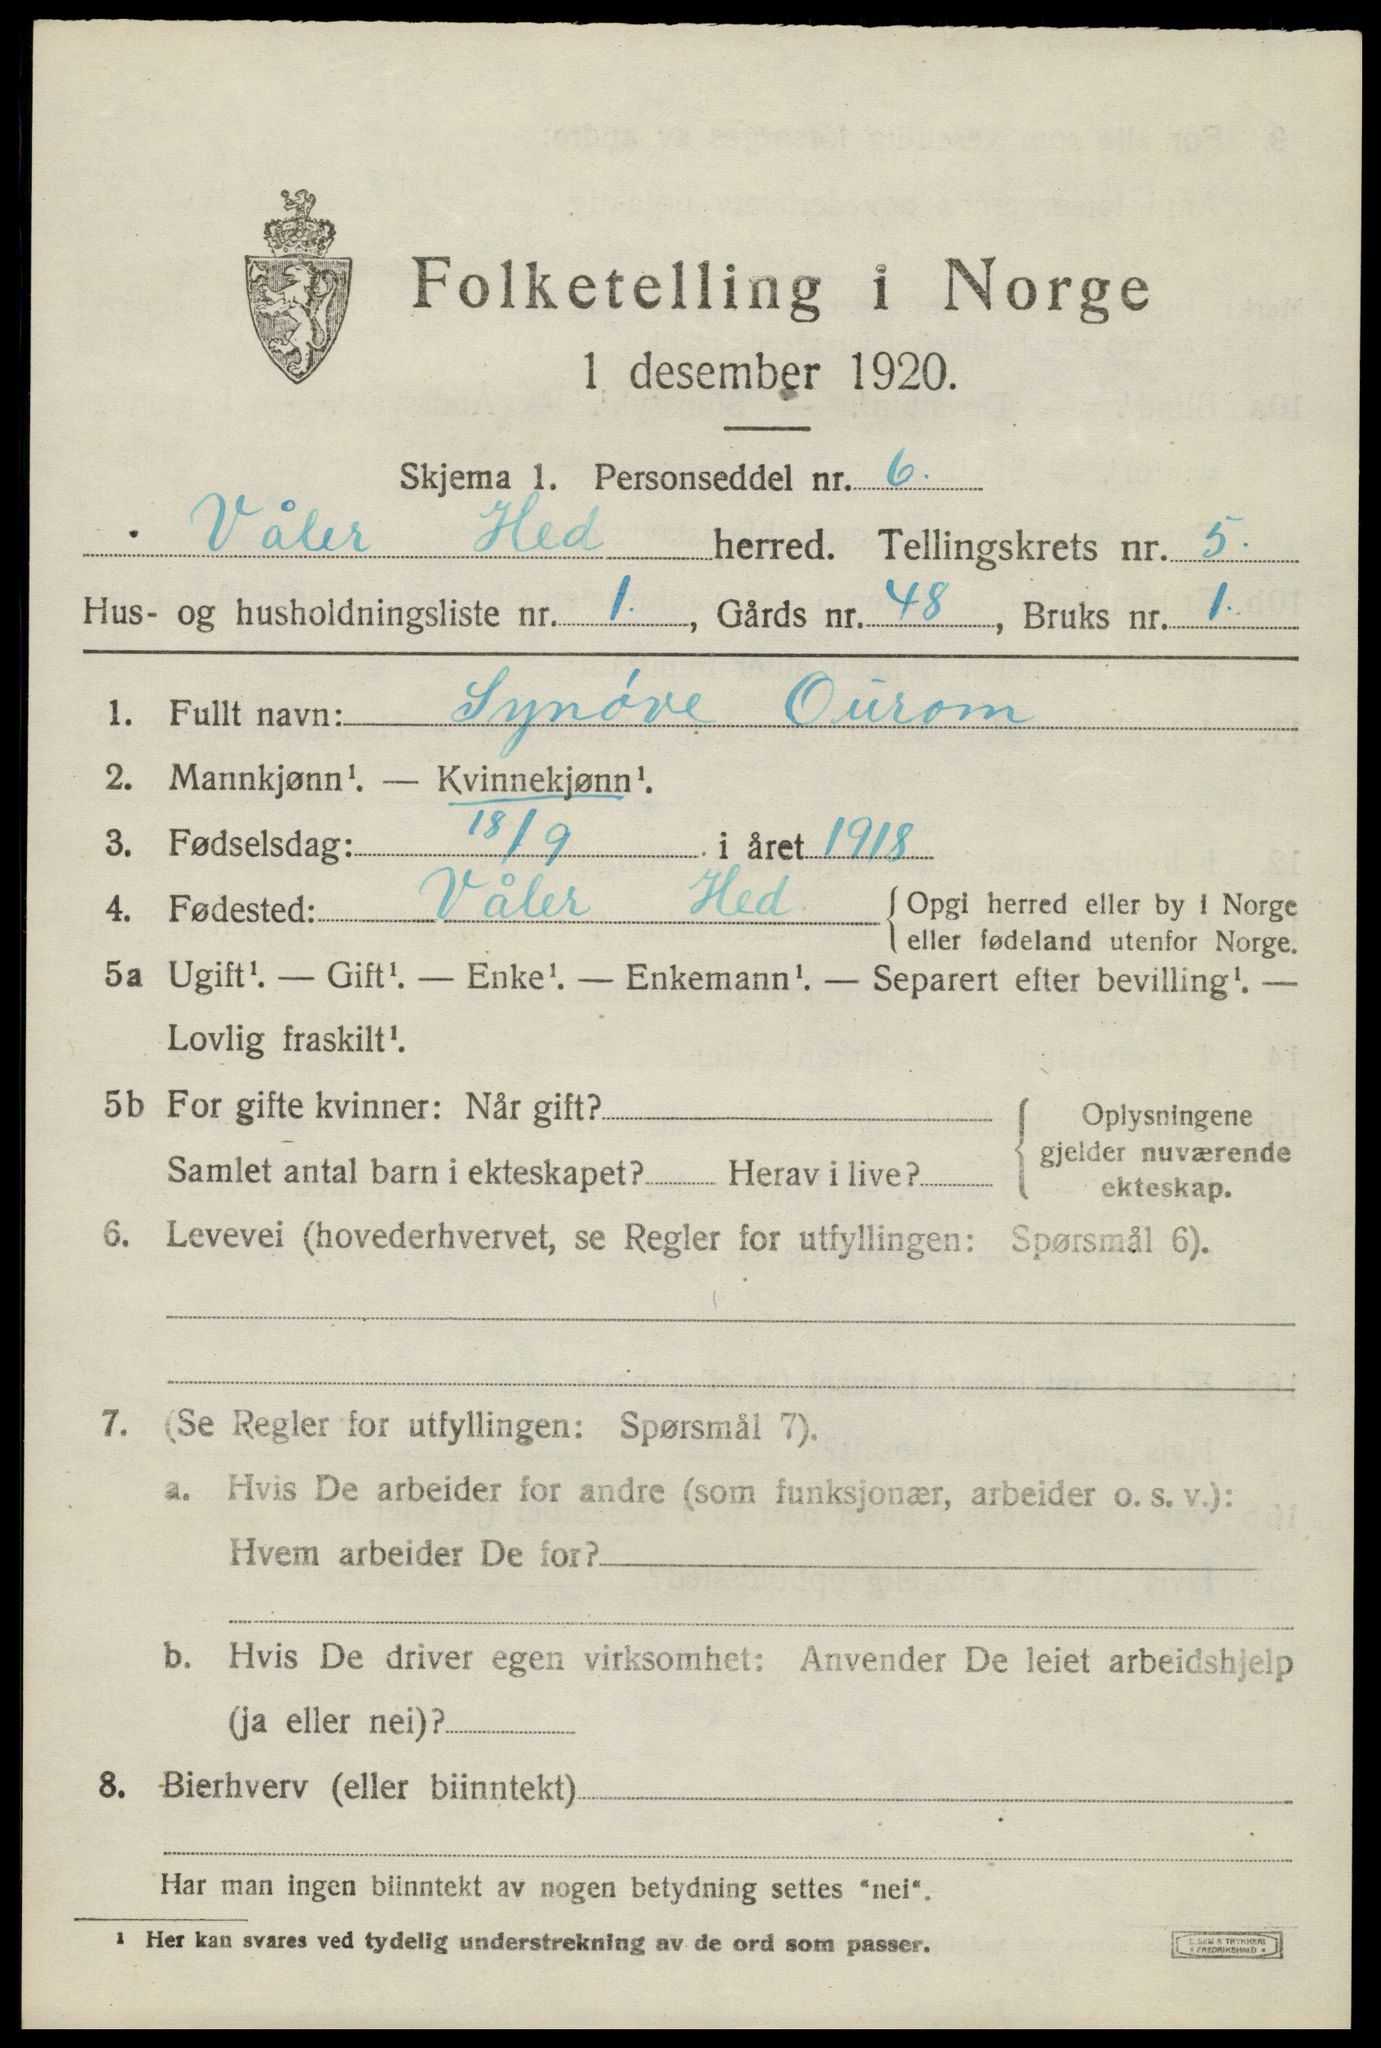 Folketelling i Norge
1 desember 1920.
Skjema 1. Personseddel nr. 6.
Våler Hed herred. Tellingskrets nr. 5.
Hus- og husholdningsliste nr. 1., Gårds nr. 48, Bruks nr. 1.
1. Fullt navn: Synóve Ourom
2. Mannkjønn¹. — Kvinnekjønn¹.
3. Fødselsdag: 18/9 i året 1918
4. Fødested: Våler Hed. {Opgi herred eller by i Norge
eller fødeland utenfor Norge.
5a Ugift¹. — Gift¹. — Enke¹. — Enkemann¹. — Separert efter bevilling¹. —
Lovlig fraskilt¹.
5b For gifte kvinner: Når gift?
Samlet antal barn i ekteskapet? Herav i live?
Oplysningene
gjelder nuværende
ekteskap.
6. Levevei (hovederhvervet, se Regler for utfyllingen: Spørsmål 6).
7. (Se Regler for utfyllingen: Spørsmål 7).
a. Hvis De arbeider for andre (som funksjonær, arbeider o. s. v.):
Hvem arbeider De for?
b. Hvis De driver egen virksomhet: Anvender De leiet arbeidshjelp
(ja eller nei)?
8. Bierhverv (eller biinntekt)
Har man ingen biinntekt av nogen betydning settes "nei".
¹ Her kan svares ved tydelig understrekning av de ord som passer.
E. SEM'S TRYKKERI
FREDRIKSHALD